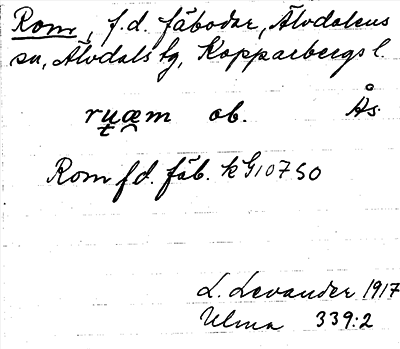 Rom, f.d. fäbodar, Älvdalens
sn, Älvdals tg, Kopparbergs l.
ru̯æ̯m ob. Ås.
Rom f d. fäb. k G10750
L. Levander 1917
Ulma 339:2